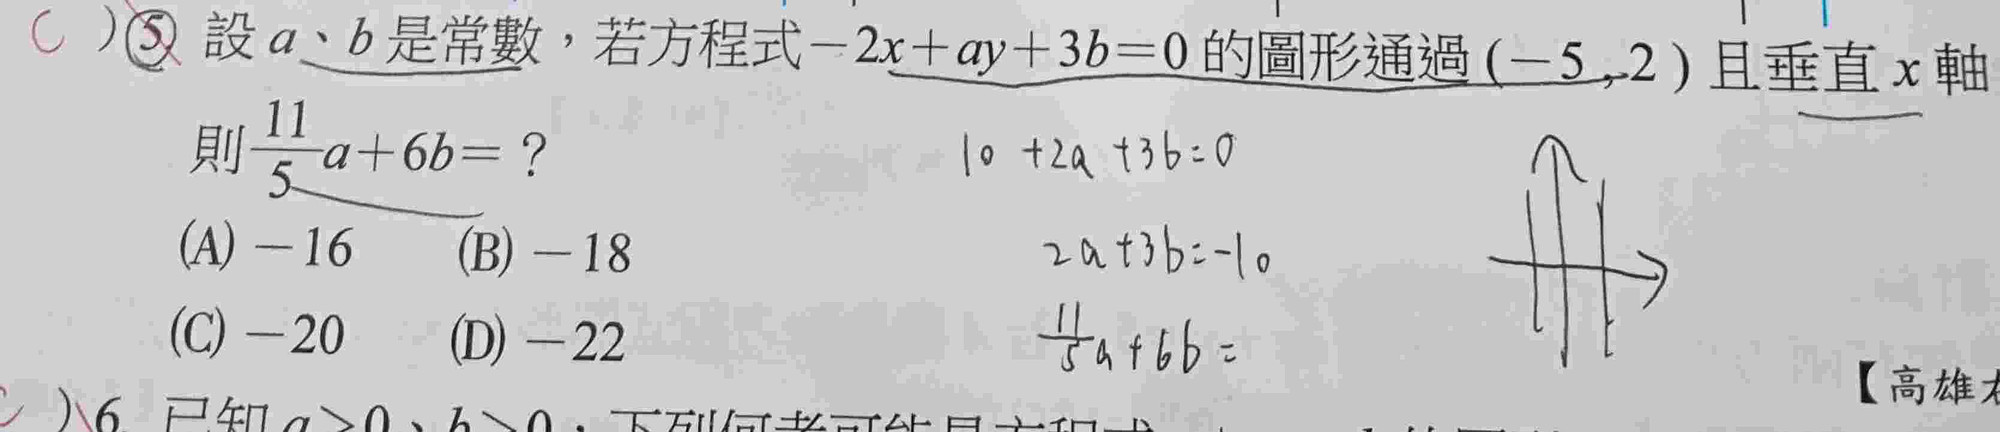 ( C )5. 設 a、b 是常數,若方程式-2x+ay+3b=0 的圖形通過(-5,2)且垂直 x 軸
則 11/5 a+6b=?
10 +2a +3b=0
(A) -16 (B) -18
2a+3b=-10
(C) -20 (D) -22
11/5 a+6b=
【高雄
)6. 已知 a>0、b>0,下列何者可能是方程式